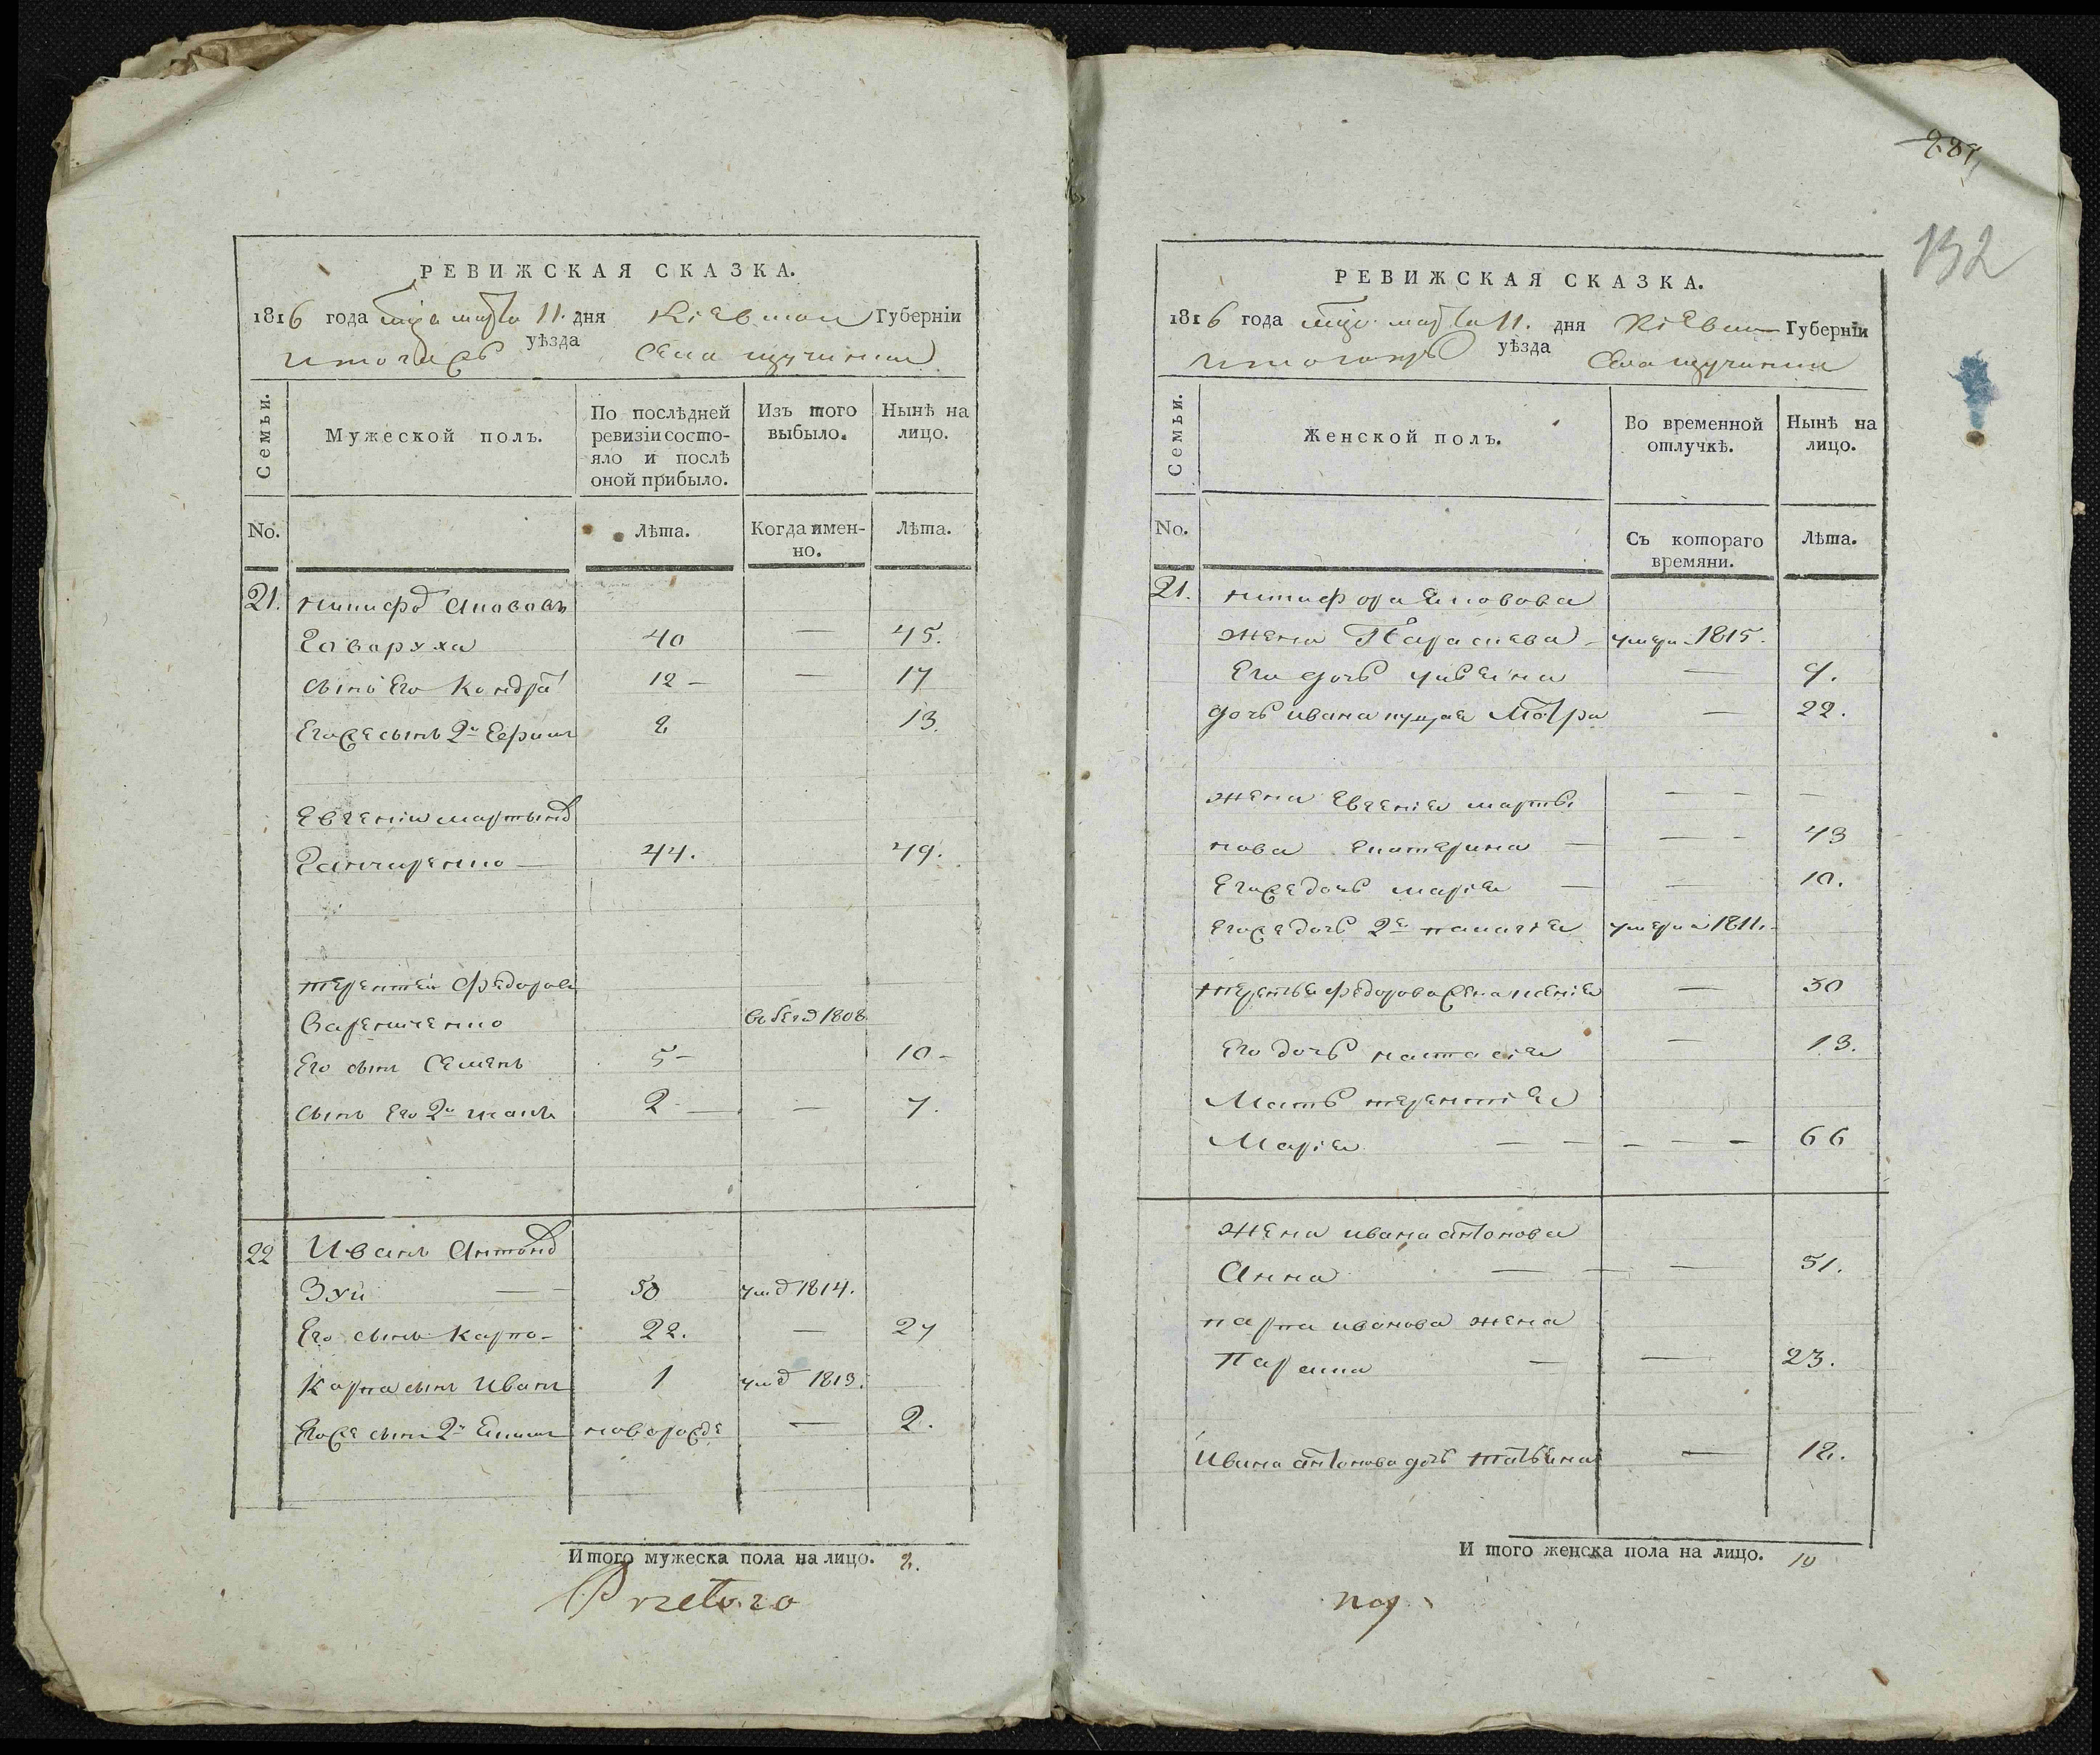 РЕВИЖСКАЯ СКАЗКА.
1816 года мца марта 11. дня Кіевской Губерніи
уѣзда Села Щучинки
Семьи.
Мужеской полъ.
По послѣдней ревизіи состояло и послѣ оной прибыло.
Изъ того выбыло.
Нынѣ на лицо.
No.
Лѣта.
Когда именно.
Лѣта.
21. Никифоръ
Говоруха 40 — 45.
сынъ Его Кондратъ 12 — — 17
Егоже сынъ 2й Ефимъ 8 13.
Евгений Мартынов
Ганчаренко — 44. 49.
Терентей Федоров
1808
Его сынъ Семенъ 5 — 10 —
сынъ Его 2й 2 — — 7.
22 Иванъ Антонов
Зуй — — 50 умер 1814.
Его сынъ Карпо — 22. — 27
Карпа сынъ Иванъ 1 умер 1813.
Егоже сынъ 2й новорожде — 2.
Итого мужеска пола на лицо. 8.
РЕВИЖСКАЯ СКАЗКА.
1816 года мца марта 11. дня Кіевской Губерніи
уѣзда Села Щучинки
Семьи.
Женской полъ.
Во временной отлучкѣ.
Нынѣ на лицо.
No.
Съ котораго времяни.
Лѣта.
21. Никифора
жена Параскева — умерла 1815.
Его дочь — 9.
дочь Ивана Мотра — 22.
жена Евгения Марты — - - —
нова Екатерина — — - 43
Егоже дочь Мария — — 10.
Егоже дочь 2я Палагия умерла 1811.
Терентья Федорова жена Ксения — 30
Его дочь Настасия — 13.
Мать Терентия
Мария — — - — — 66
жена Ивана Антонова
Анна — — — 51.
Карпа Иванова жена
— — 23.
Ивана Антонова дочь Татьяна — 12.
И того женска пола на лицо. 10
132